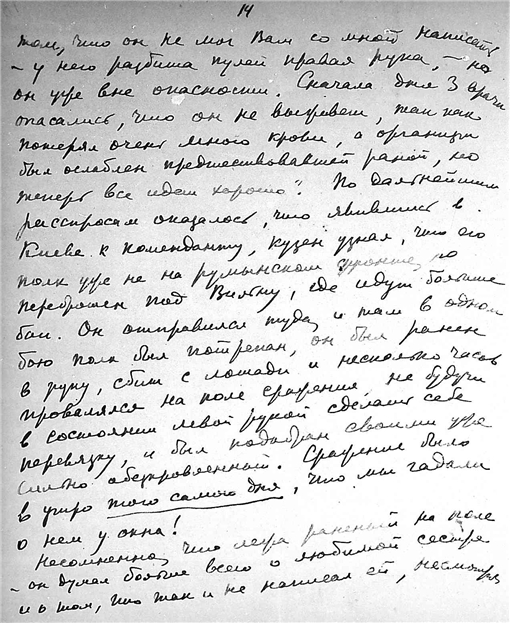 14
том, что он не мог Вам со мной написать
– у него разбита пулей правая рука, – но
он уже вне опасности. Сначала дня 3 врачи
опасались, что он не выживет, так как
потерял очень много крови, а организм
был ослаблен предшествовавшей раной, но
теперь все идет хорошо". По дальнейшим
расспросам оказалось, что явившись в
Киеве к коменданту, кузен узнал, что его
полк уже не на румынском фронте, а
переброшен под Вильну, где идут большие
бои. Он отправился туда, и там в одном
бою полк был потрепан, он был ранен
в руку, сбит с лошади и несколько часов
провалялся на поле сражения, не будучи
в состоянии левой рукой сделать себе
перевязку, и был подобран своими уже
сильно обескровленный. Сражение было
в утро того самого дня, что мы гадали
о нем у окна!
Несомненно, что лежа раненый на поле
– он думал больше всего о любимой сестре
и о том, что так и не написал ей, несмотря